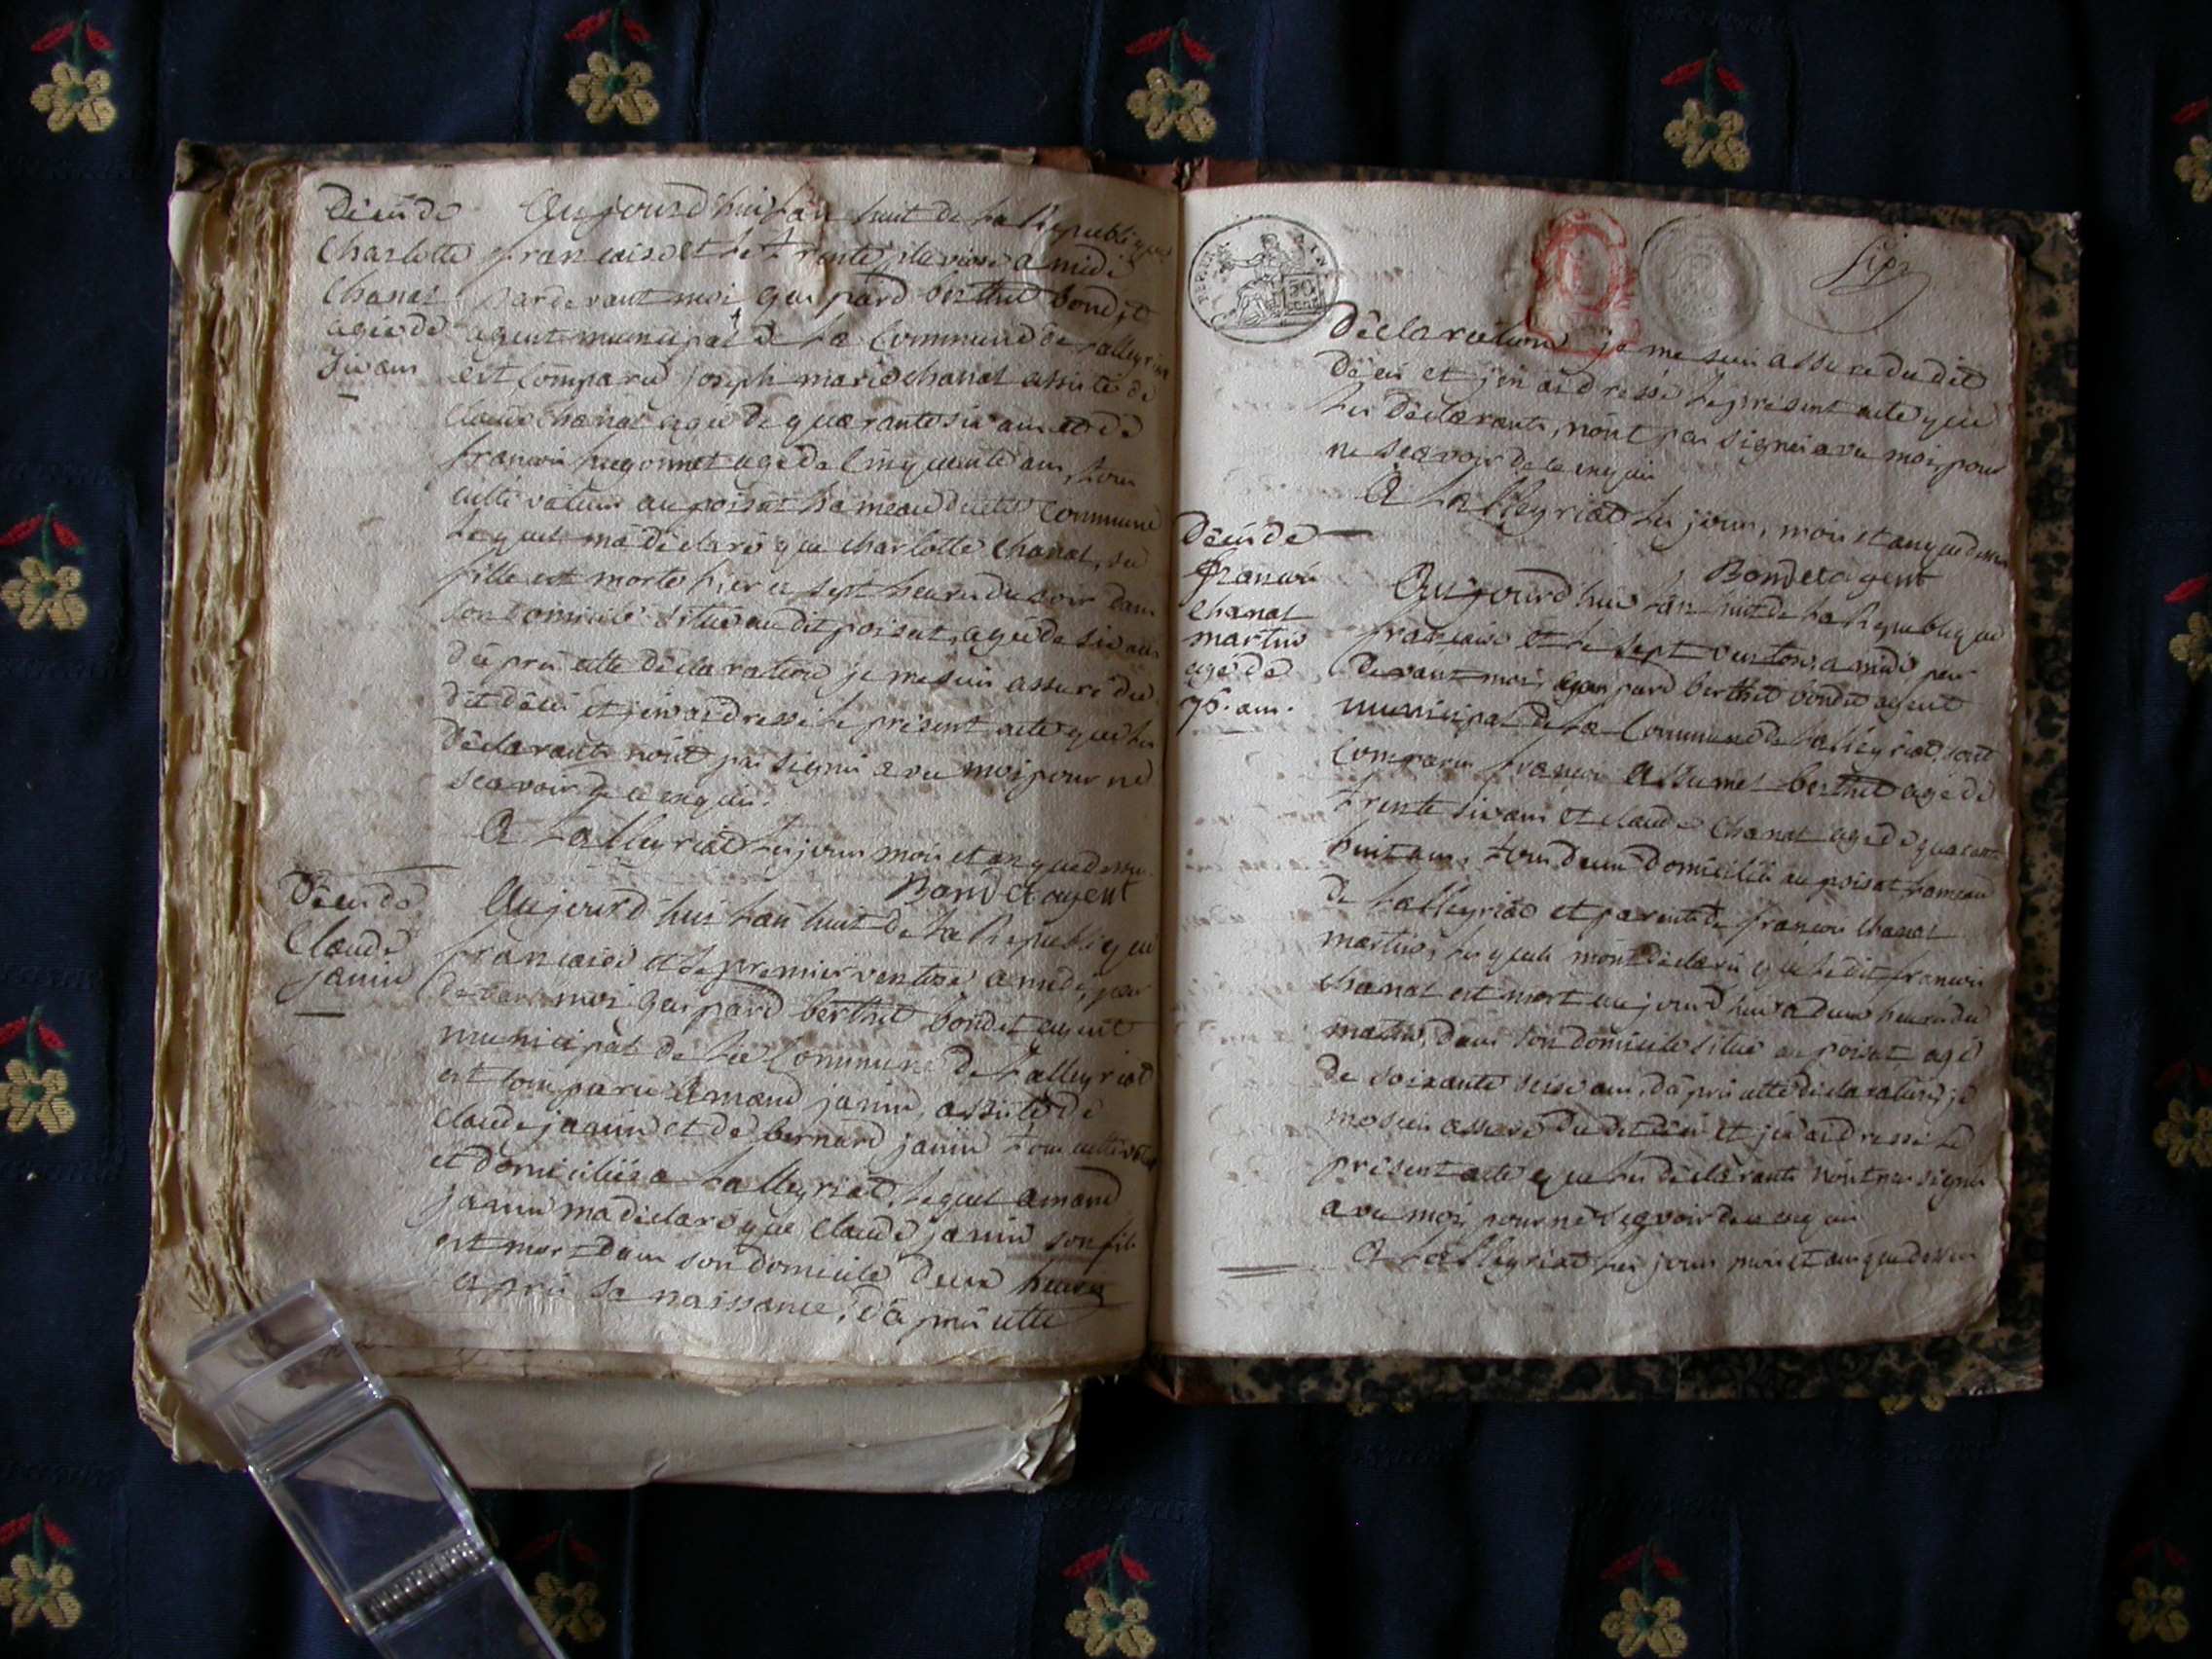 Décéi de
Charlotte
Chanal
agée de
six ans
Aujourd'hui l'an huit de la Republique
francaise et le trente pluviose a midi
pardevant moi gaspard berthet bondet
agent municipal de la Commune de Lalleyriat
est comparu joseph marie chanal assisté de
claude chanal agé de quarante six ans et de
francois hugonnet agé de cinquante ans, tous
cultivateurs au poisat hameau de cette commune
lequel m'a déclaré que charlotte chanal, sa
fille est morte hier a sept heures du soir dans
son domicile situé au dit poisat, agée de six ans
d'après cette déclaration je me suis assuré du
dit décéi et j'en ai dressé le présent acte que les
déclarants n'ont pas signé avec moi pour ne
scavoir de ce enquis.
A Lalleyriat les jour mois et an que dessus.
Bondet agent
Décéi de
Claude
janin
Aujourd'hui l'an huit de la Republique
francaise et le premier ventose a midi, par
devant moi gaspard berthet bondet agent
municipal de la Commune de Lalleyriat
est comparu amand janin, assisté de
claude janin et de bernard janin tous cultivateurs
et domiciliés a Lalleyriat, lequel amand
janin m'a déclaré que claude janin son fils
est mort dans son domicile deux heures
après sa naissance, d'après cette
PREMIER
50
CENT
déclaration je me suis assuré du dit
décéi et j'en ai dressé le présent acte que
les déclarants, n'ont pas signé avec moi, pour
ne scavoir de ce enquis
A Lalleyriat les jour, mois et an que dessus
Bondet agent
Décéi de
francois
chanal
martin
agé de
76. ans.
Aujourd'hui l'an huit de la Republique
francaise et le sept ventose a midi par
devant moi, gaspard berthet bondet agent
municipal de la Commune de Lalleyriat, sont
comparus francois berthet agé de
trente six ans et claude chanal agé de quarante
huit ans, tous deux domiciliés au poisat, hameau
de Lalleyriat et parents de francois chanal
martin, lesquels m'ont déclaré que le dit francois
chanal est mort aujourd'hui a deux heures du
matin, dans son domicile situé au poisat, agé
de soixante seise ans, d'après cette déclaration, je
me suis assuré du dit décéi et j'en ai dressé le
présent acte que les déclarants n'ont pas signé
avec moi, pour ne scavoir de ce enquis
A Lalleyriat les jour mois et an que dessus